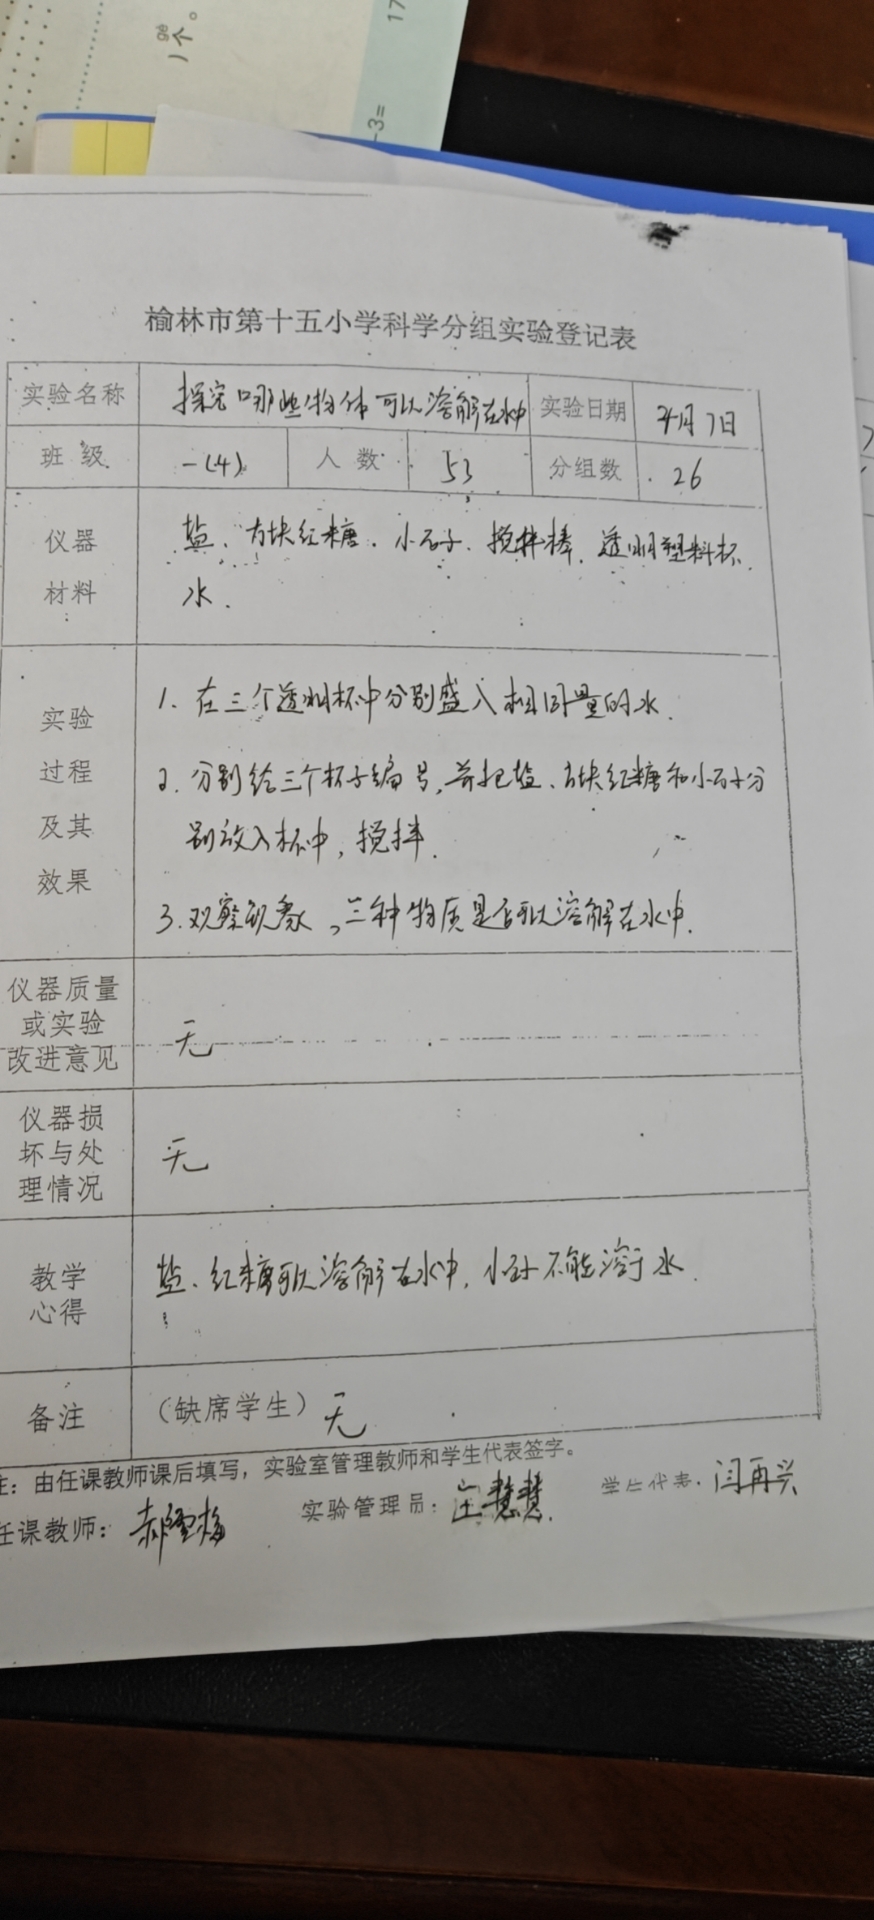 个。
17
-3=
榆林市第十五小学科学分组实验登记表
实验名称 探究哪些物体可以溶解在水中 实验日期 月7日
班级 一(4) 人数 53 分组数 26
仪器 盐、方块红糖、小石子、搅拌棒、透明塑料杯、
材料 水.
实验 1. 在三个透明杯中分别盛入相同量的水.
过程 2. 分别给三个杯子编号,并把盐、方块红糖和小石子分
及其 别放入杯中,搅拌.
效果 3.观察现象,三种物质是否可以溶解在水中.
仪器质量
或实验 无
改进意见
仪器损
坏与处 无
理情况
教学 盐、红糖可以溶解在水中,小石子不能溶于水.
心得
备注 (缺席学生) 无
注:由任课教师课后填写,实验室管理教师和学生代表签字。
任课教师: 实验管理员: 慧慧. 学生代表: 闫再兴